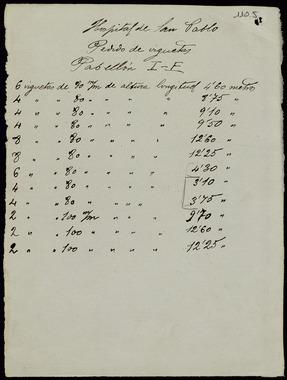 110.5
Hospital de San Pablo
Pedido de viguetas
Pabellón I-E
6 viguetas de 80 m/m de altura longitud 4'60 metros
4 " " 80 " " " " 8'75 "
4 " " 80 " " " " 9'10 "
4 " " 80 " " " " 9'50 "
8 " " 80 " " " " 12'60 "
8 " " 80 " " " " 12'25 "
6 " " 80 " " " " 4'30 "
4 " " 80 " " " " 3'10 "
4 " " 80 " " " " 3'75 "
2 " " 100 m/m " " " 9'70 "
2 " " 100 " " " " 12'60 "
2 " " 100 " " " " 12'25 "